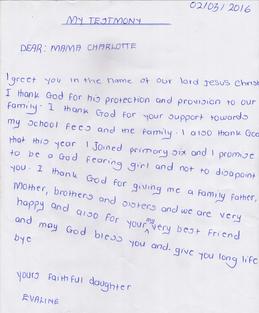 02/03/2016
MY TESTMONY
DEAR: MAMA CHARLOTTE
I greet you in the name of our lord Jesus Christ
I thank God for his protection and provision to our
family. I thank God for your support towards
my school fees and the family. I also thank God
that this year I Joined primary six and I promise
to be a God fearing girl and not to disapoint
you. I thank God for giving me a family father,
Mother, brothers and sisters and we are very
happy and also for your my very best Friend
and may God bless you and give you long life
bye
yours faithful daughter
EVALINE